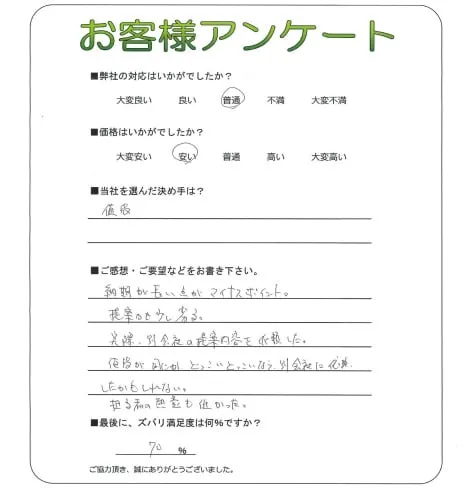 お客様アンケート
■弊社の対応はいかがでしたか？
大変良い 良い 普通 不満 大変不満
■価格はいかがでしたか？
大変安い 安い 普通 高い 大変高い
■当社を選んだ決め手は？
値段
■ご感想・ご要望などをお書き下さい。
納期が長い点がマイナスポイント。
提案力も少し劣る。
実際、別会社の提案内容を依頼した。
値段が どっこいどっこいなら、別会社に依頼
したかもしれない。
担当者の熱量も低かった。
■最後に、ズバリ満足度は何％ですか？
70 %
ご協力頂き、誠にありがとうございました。